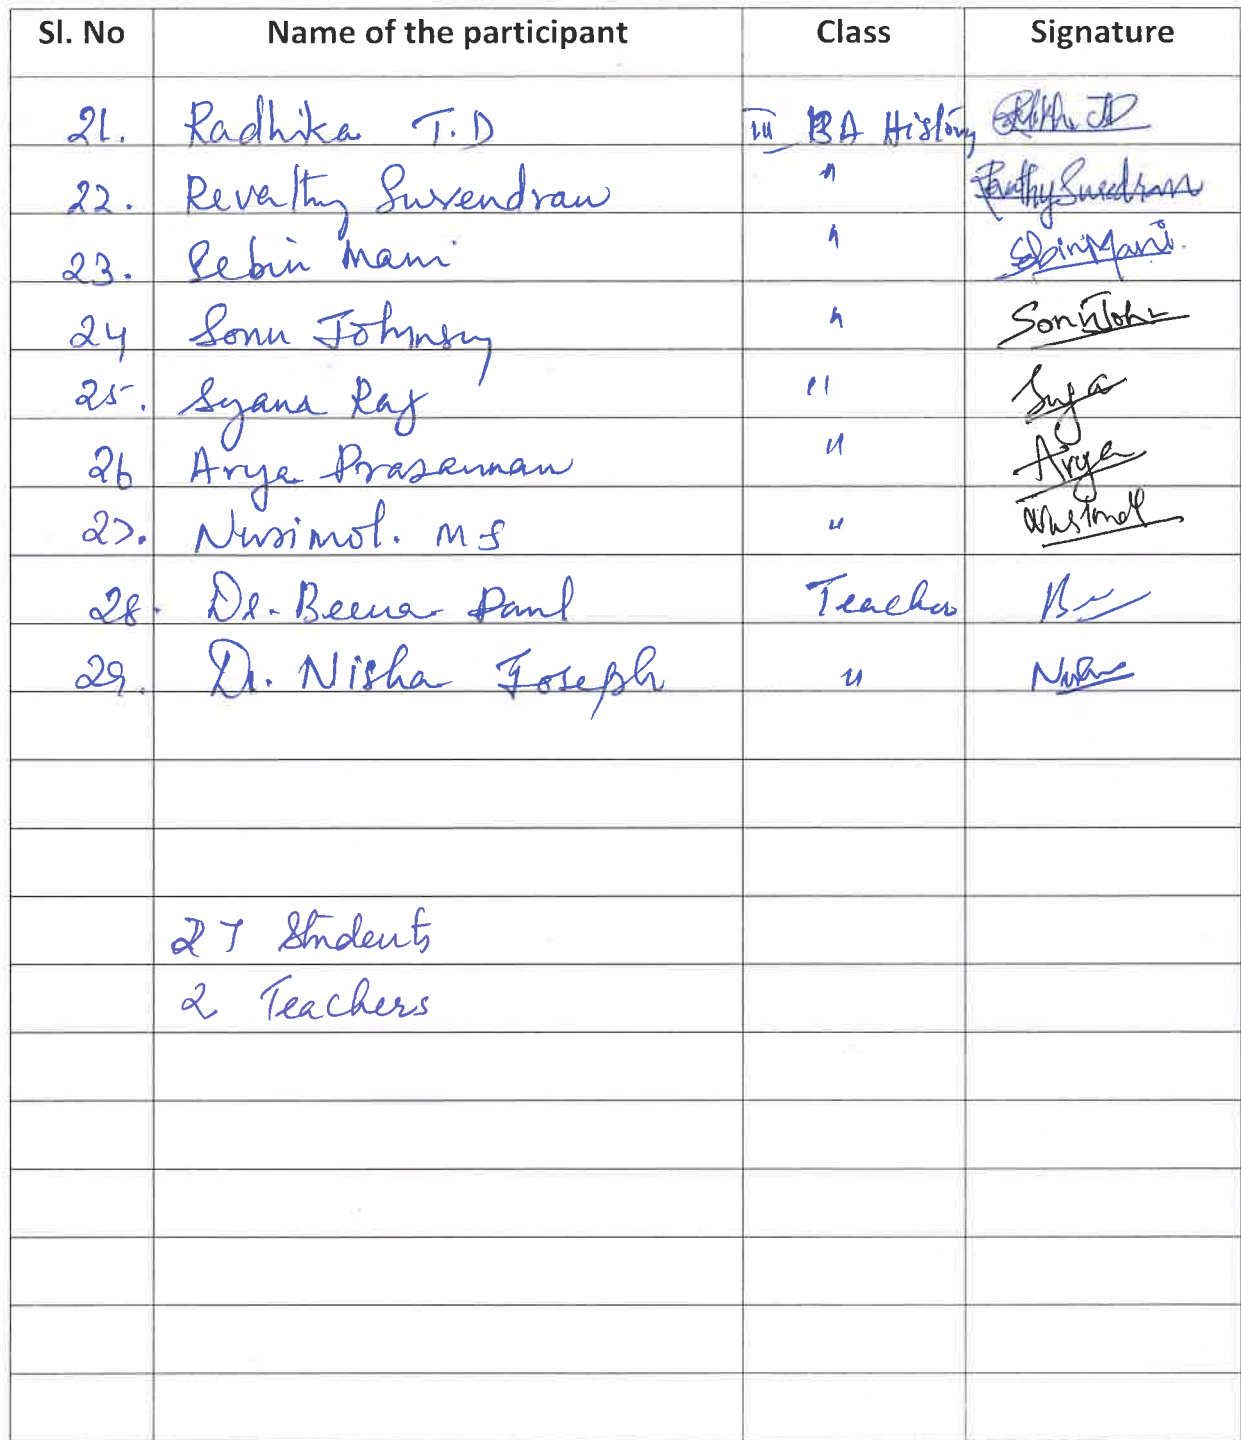 Sl. No Name of the participant Class Signature
21. Radhika T.D III BA History
22. Revathy Surendran " Revathy Surendran
23. Sebin Mani " Sebin Mani
24 Sonu Johnson " Sonu John
25. Syana Raj "
26 Arya Prasannan " Arya
27. Nusimol. M S " Nusimol
28. Dr. Beena Paul Teacher
29. Dr. Nisha Joseph " Nisha
27 Students
2 Teachers